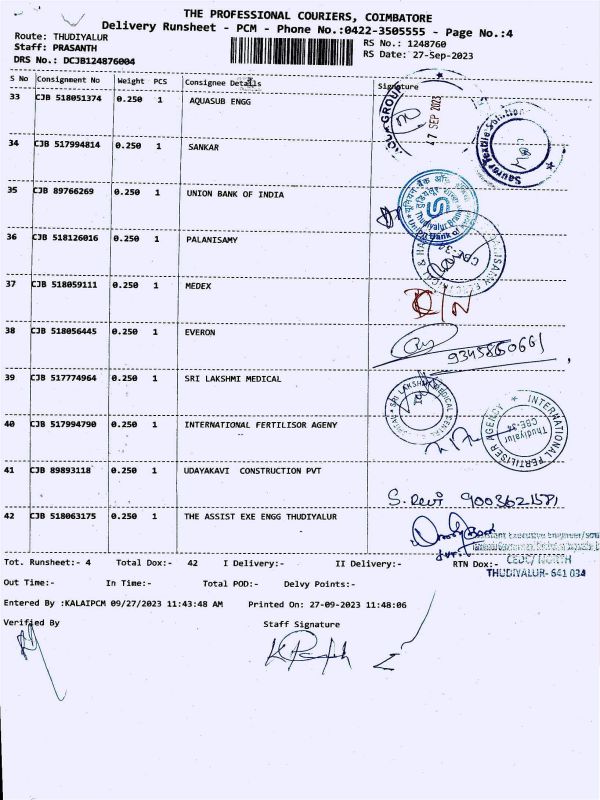 THE PROFESSIONAL COURIERS, COIMBATORE
Delivery Runsheet - PCM - Phone No.:0422-3505555 - Page No.:4
Route: THUDIYALUR
Staff: PRASANTH
DRS No.: DCJB124876004
RS No.: 1248760
RS Date: 27-Sep-2023
S No Consignment No Weight PCS Consignee Details Signature
33 CJB 518051374 0.250 1 AQUASUB ENGG
GROUP
17 SEP 2023
34 CJB 517994814 0.250 1 SANKAR
35 CJB 89766269 0.250 1 UNION BANK OF INDIA
Thudiyalur Branch
Union Bank of
36 CJB 518126016 0.250 1 PALANISAMY
37 CJB 518059111 0.250 1 MEDEX
38 CJB 518056445 0.250 1 EVERON
39 CJB 517774964 0.250 1 SRI LAKSHMI MEDICAL
SRI LAKSHMI MEDICAL
40 CJB 517994790 0.250 1 INTERNATIONAL FERTILISOR AGENY
INTERNATIONAL FERTILISER AGENCY
Thudiyalur
CBE-34
41 CJB 89893118 0.250 1 UDAYAKAVI CONSTRUCTION PVT
S. Revi 9003621581
42 CJB 518063175 0.250 1 THE ASSIST EXE ENGG THUDIYALUR
Executive Engineer
NORTH
THUDIYALUR- 641 034
Tot. Runsheet:- 4 Total Dox:- 42 I Delivery:- II Delivery:- RTN Dox:-
Out Time:- In Time:- Total POD:- Delvy Points:-
Entered By :KALAIPCM 09/27/2023 11:43:48 AM Printed On: 27-09-2023 11:48:06
Verified By Staff Signature